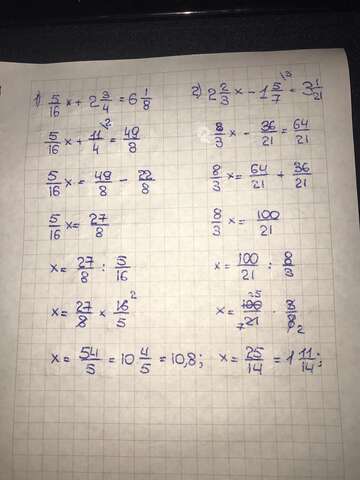 1) 5/16 x + 2 3/4 = 6 1/8
5/16 x + 11/4 \2 = 49/8
5/16 x = 49/8 - 22/8
5/16 x = 27/8
x = 27/8 : 5/16
x = 27/8 × 16/5 2
x = 54/5 = 10 4/5 = 10,8;
2) 2 2/3 x - 1 5/7 \3 = 3 1/21
8/3 x - 36/21 = 64/21
8/3 x = 64/21 + 36/21
8/3 x = 100/21
x = 100/21 : 8/3
x = 25 100/21 7 · 3/8 2
x = 25/14 = 1 11/14;